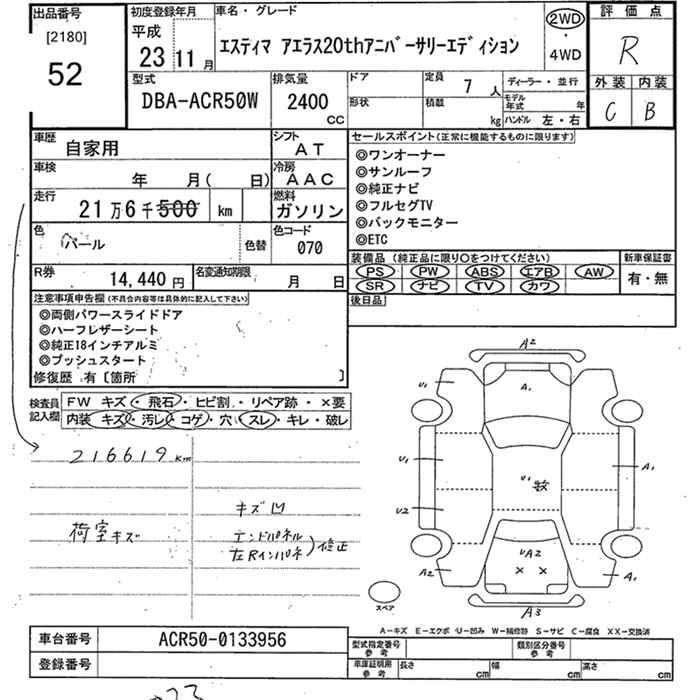 出品番号
[2180]
52
初度登録年月
平成
23 11月
車名・グレード
エスティマ アエラス20thアニバーサリーエディション
2WD
・
4WD
評価点
R
外装 内装
C B
型式
DBA-ACR50W
排気量
2400
CC
ドア
形状
定員
7 人
積載
kg
ディーラー・並行
モデル年式 年
ハンドル 左・右
車歴
自家用
シフト
AT
車検
年 月( 日)
冷房
AAC
走行
21万6千500 km
燃料
ガソリン
色
パール
色替
色コード
070
R券
14,440円
名変通知期限
月 日
セールスポイント(正常に機能するものに限ります)
◎ワンオーナー
◎サンルーフ
◎純正ナビ
◎フルセグTV
◎バックモニター
◎ETC
装備品 (純正品に限り○をつけてください)
PS PW ABS エアB AW
SR ナビ TV カワ
新車保証書
有・無
後日品
注意事項申告欄(不具合内容等は具体的に記入して下さい)
◎両側パワースライドドア
◎ハーフレザーシート
◎純正18インチアルミ
◎プッシュスタート
修復歴 有〔箇所 〕
検査員記入欄
FW キズ・飛石・ヒビ割・リペア跡・×要
内装 キズ・汚レ・コゲ・穴・スレ・キレ・破レ
216619km
荷室キズ
キズ凹
エンドパネル
左Rインパネ)修正
A2
U1
A1
U1
U1
A1
U2
UA2
× ×
A2
A1
A3
スペア
A-キズ E-エクボ U-凹み W-補修跡 S-サビ C-腐食 XX-交換済
車台番号
ACR50-0133956
登録番号
型式指定番号
参考
類別区分番号
参考
車庫証明用
参考
長さ cm
幅 cm
高さ cm